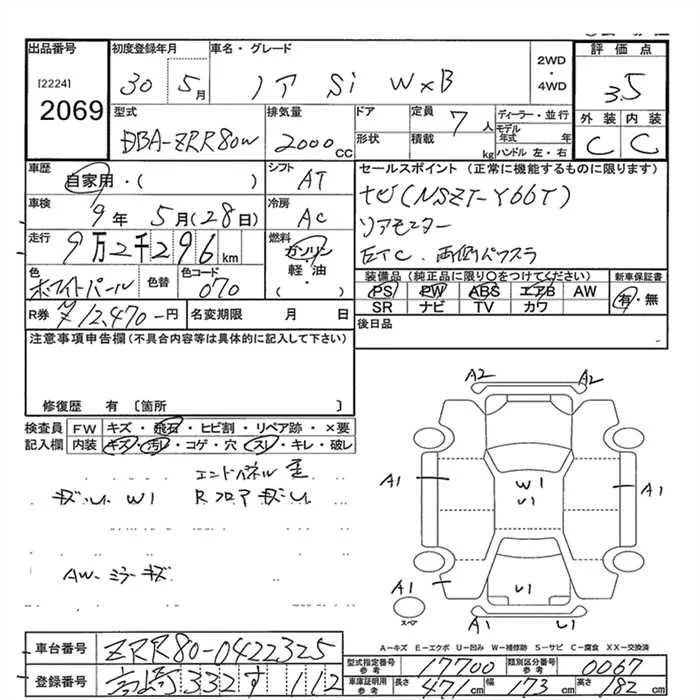 出品番号 初度登録年月 車名・グレード 2WD・4WD 評価点
[2224] 30 5月 ノア Si W×B 3.5
2069 外装 内装
型式 排気量 ドア 定員 7人 ディーラー・並行 C C
DBA-ZRR80W 2000cc 形状 積載 kg モデル年式 年 ハンドル 左・右
車歴 シフト セールスポイント(正常に機能するものに限ります)
自家用・( ) AT ナビ(NSZT-Y66T)
車検 冷房 リアモニター
9年5月(28日) AC ETC. 両側パワスラ
走行 燃料
9万2千296km ガソリン・軽油 装備品(純正品に限り○をつけてください) 新車保証書
色 色替 色コード ( ) PS PW ABS エアB AW 有・無
ホワイトパール 070 SR ナビ TV カワ
R券 ¥12,470-円 名変期限 月 日 後日品
注意事項申告欄(不具合内容等は具体的に記入して下さい)
修復歴 有 〔箇所 〕
検査員 FW キズ・飛石・ヒビ割・リペア跡・×要
記入欄 内装 キズ・汚レ・コゲ・穴・スレ・キレ・破レ
A2 A2
エンドパネル
W1 Rフロア
A1 W1 U1 A1
AW-ミラーキズ
A1 U1
スペア A1 U1
A-キズ E-エクボ U-凹み W-補修跡 S-サビ C-腐食 XX-交換済
車台番号 ZRR80-0422325
型式指定番号 参考 17700 類別区分番号 参考 0067
登録番号 高崎332す112
車庫証明用 参考 長さ 471cm 幅 173cm 高さ 182cm